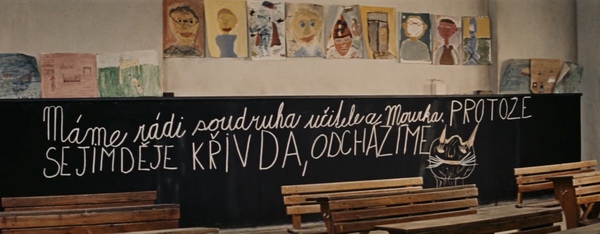 Máme rádi soudruha učitele a Mourka. PROTOZE
SE JIM DĚJE KŘIVDA, ODCHÁZÍME